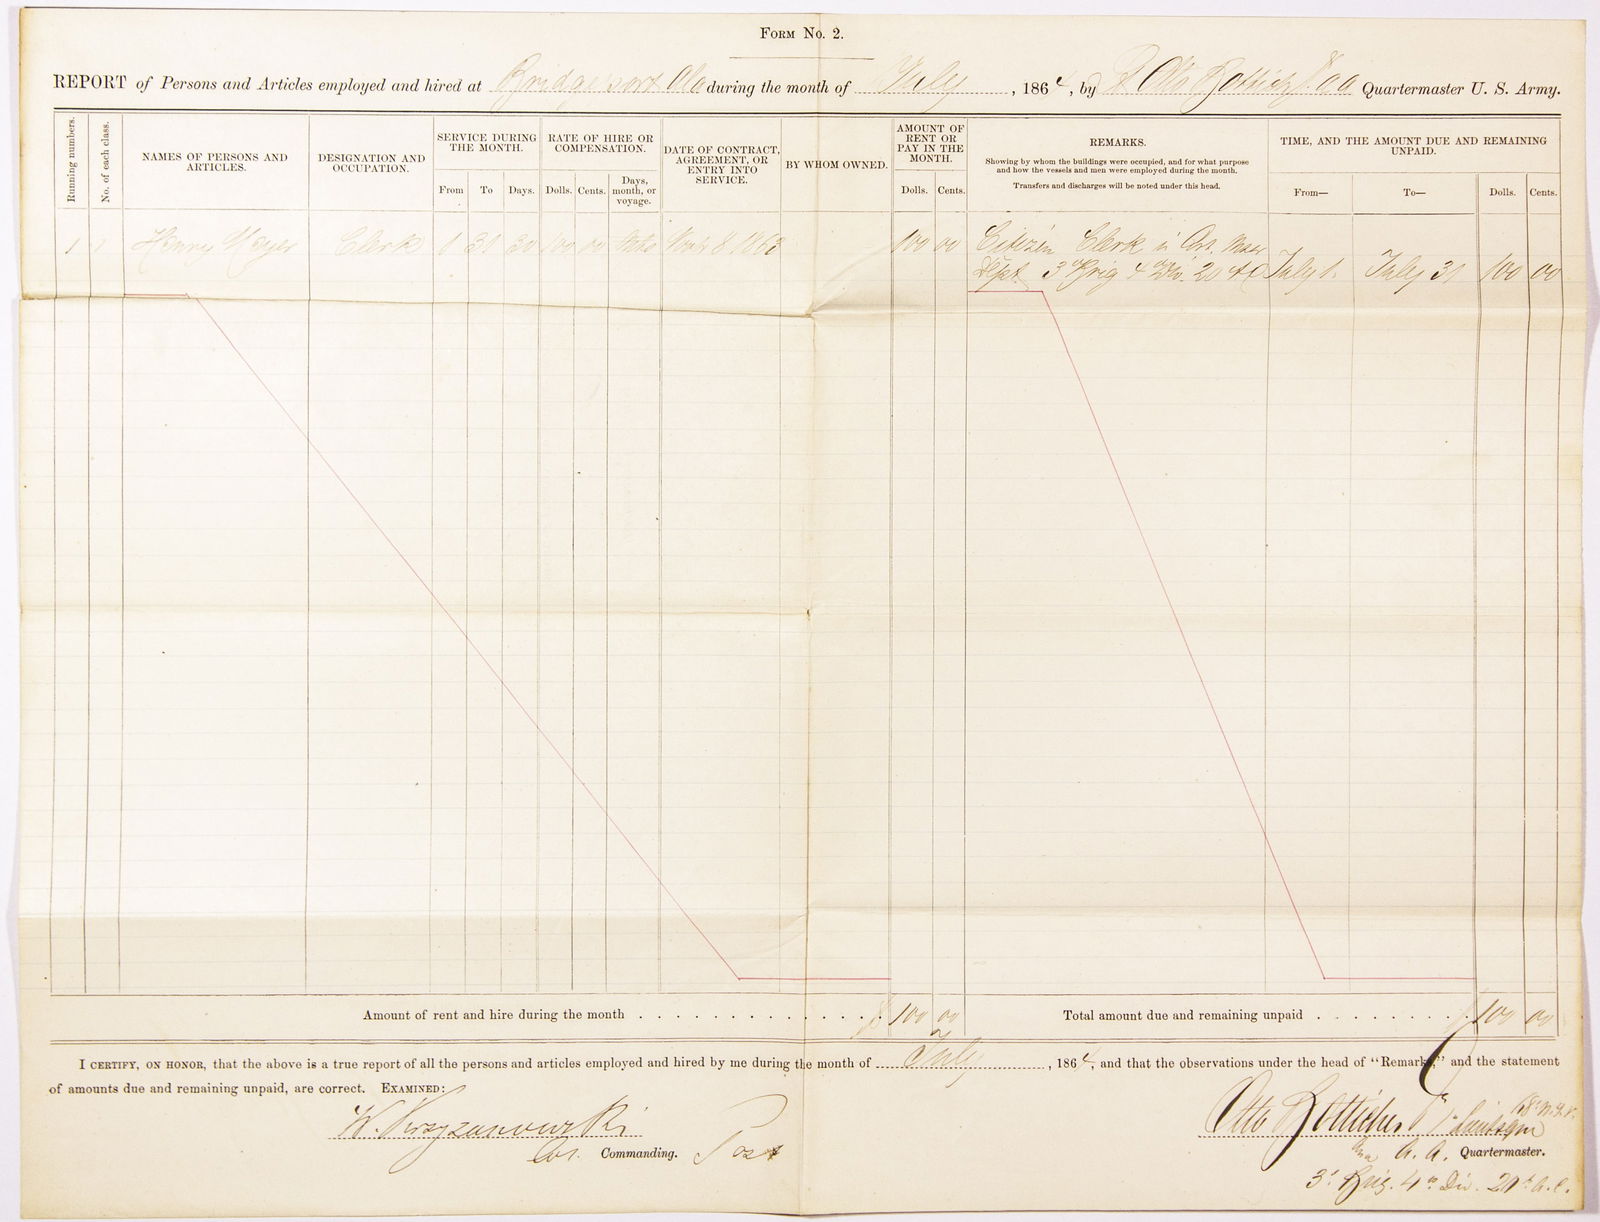 FORM No. 2.
REPORT of Persons and Articles employed and hired at Bridgeport Ala during the month of July, 1864, by Otto Quartermaster U. S. Army.
Running numbers.
No. of each class.
NAMES OF PERSONS AND ARTICLES.
DESIGNATION AND OCCUPATION.
SERVICE DURING THE MONTH.
From
To
Days.
RATE OF HIRE OR COMPENSATION.
Dolls.
Cents.
Days, month, or voyage.
DATE OF CONTRACT, AGREEMENT, OR ENTRY INTO SERVICE.
BY WHOM OWNED.
AMOUNT OF RENT OR PAY IN THE MONTH.
Dolls.
Cents.
REMARKS.
Showing by whom the buildings were occupied, and for what purpose
and how the vessels and men were employed during the month.
Transfers and discharges will be noted under this head.
TIME, AND THE AMOUNT DUE AND REMAINING UNPAID.
From—
To—
Dolls.
Cents.
1 1 Henry Meyer Clerk 1 31 30 100 00 Nov 8 1863 100 00 Citizen Clerk in Qr. Mas
Dept. 3 Brig 4 Div. 20 A C July 1. July 31 100 00
Amount of rent and hire during the month $ 100 00
Total amount due and remaining unpaid $ 100 00
I CERTIFY, ON HONOR, that the above is a true report of all the persons and articles employed and hired by me during the month of July, 1864, and that the observations under the head of "Remarks," and the statement
of amounts due and remaining unpaid, are correct. EXAMINED:
W. Krzyzanowski
Col. Commanding. Post
Otto 68th N.Y.V.
A. A. Quartermaster.
3d Brig. 4th Div. 20th A.C.